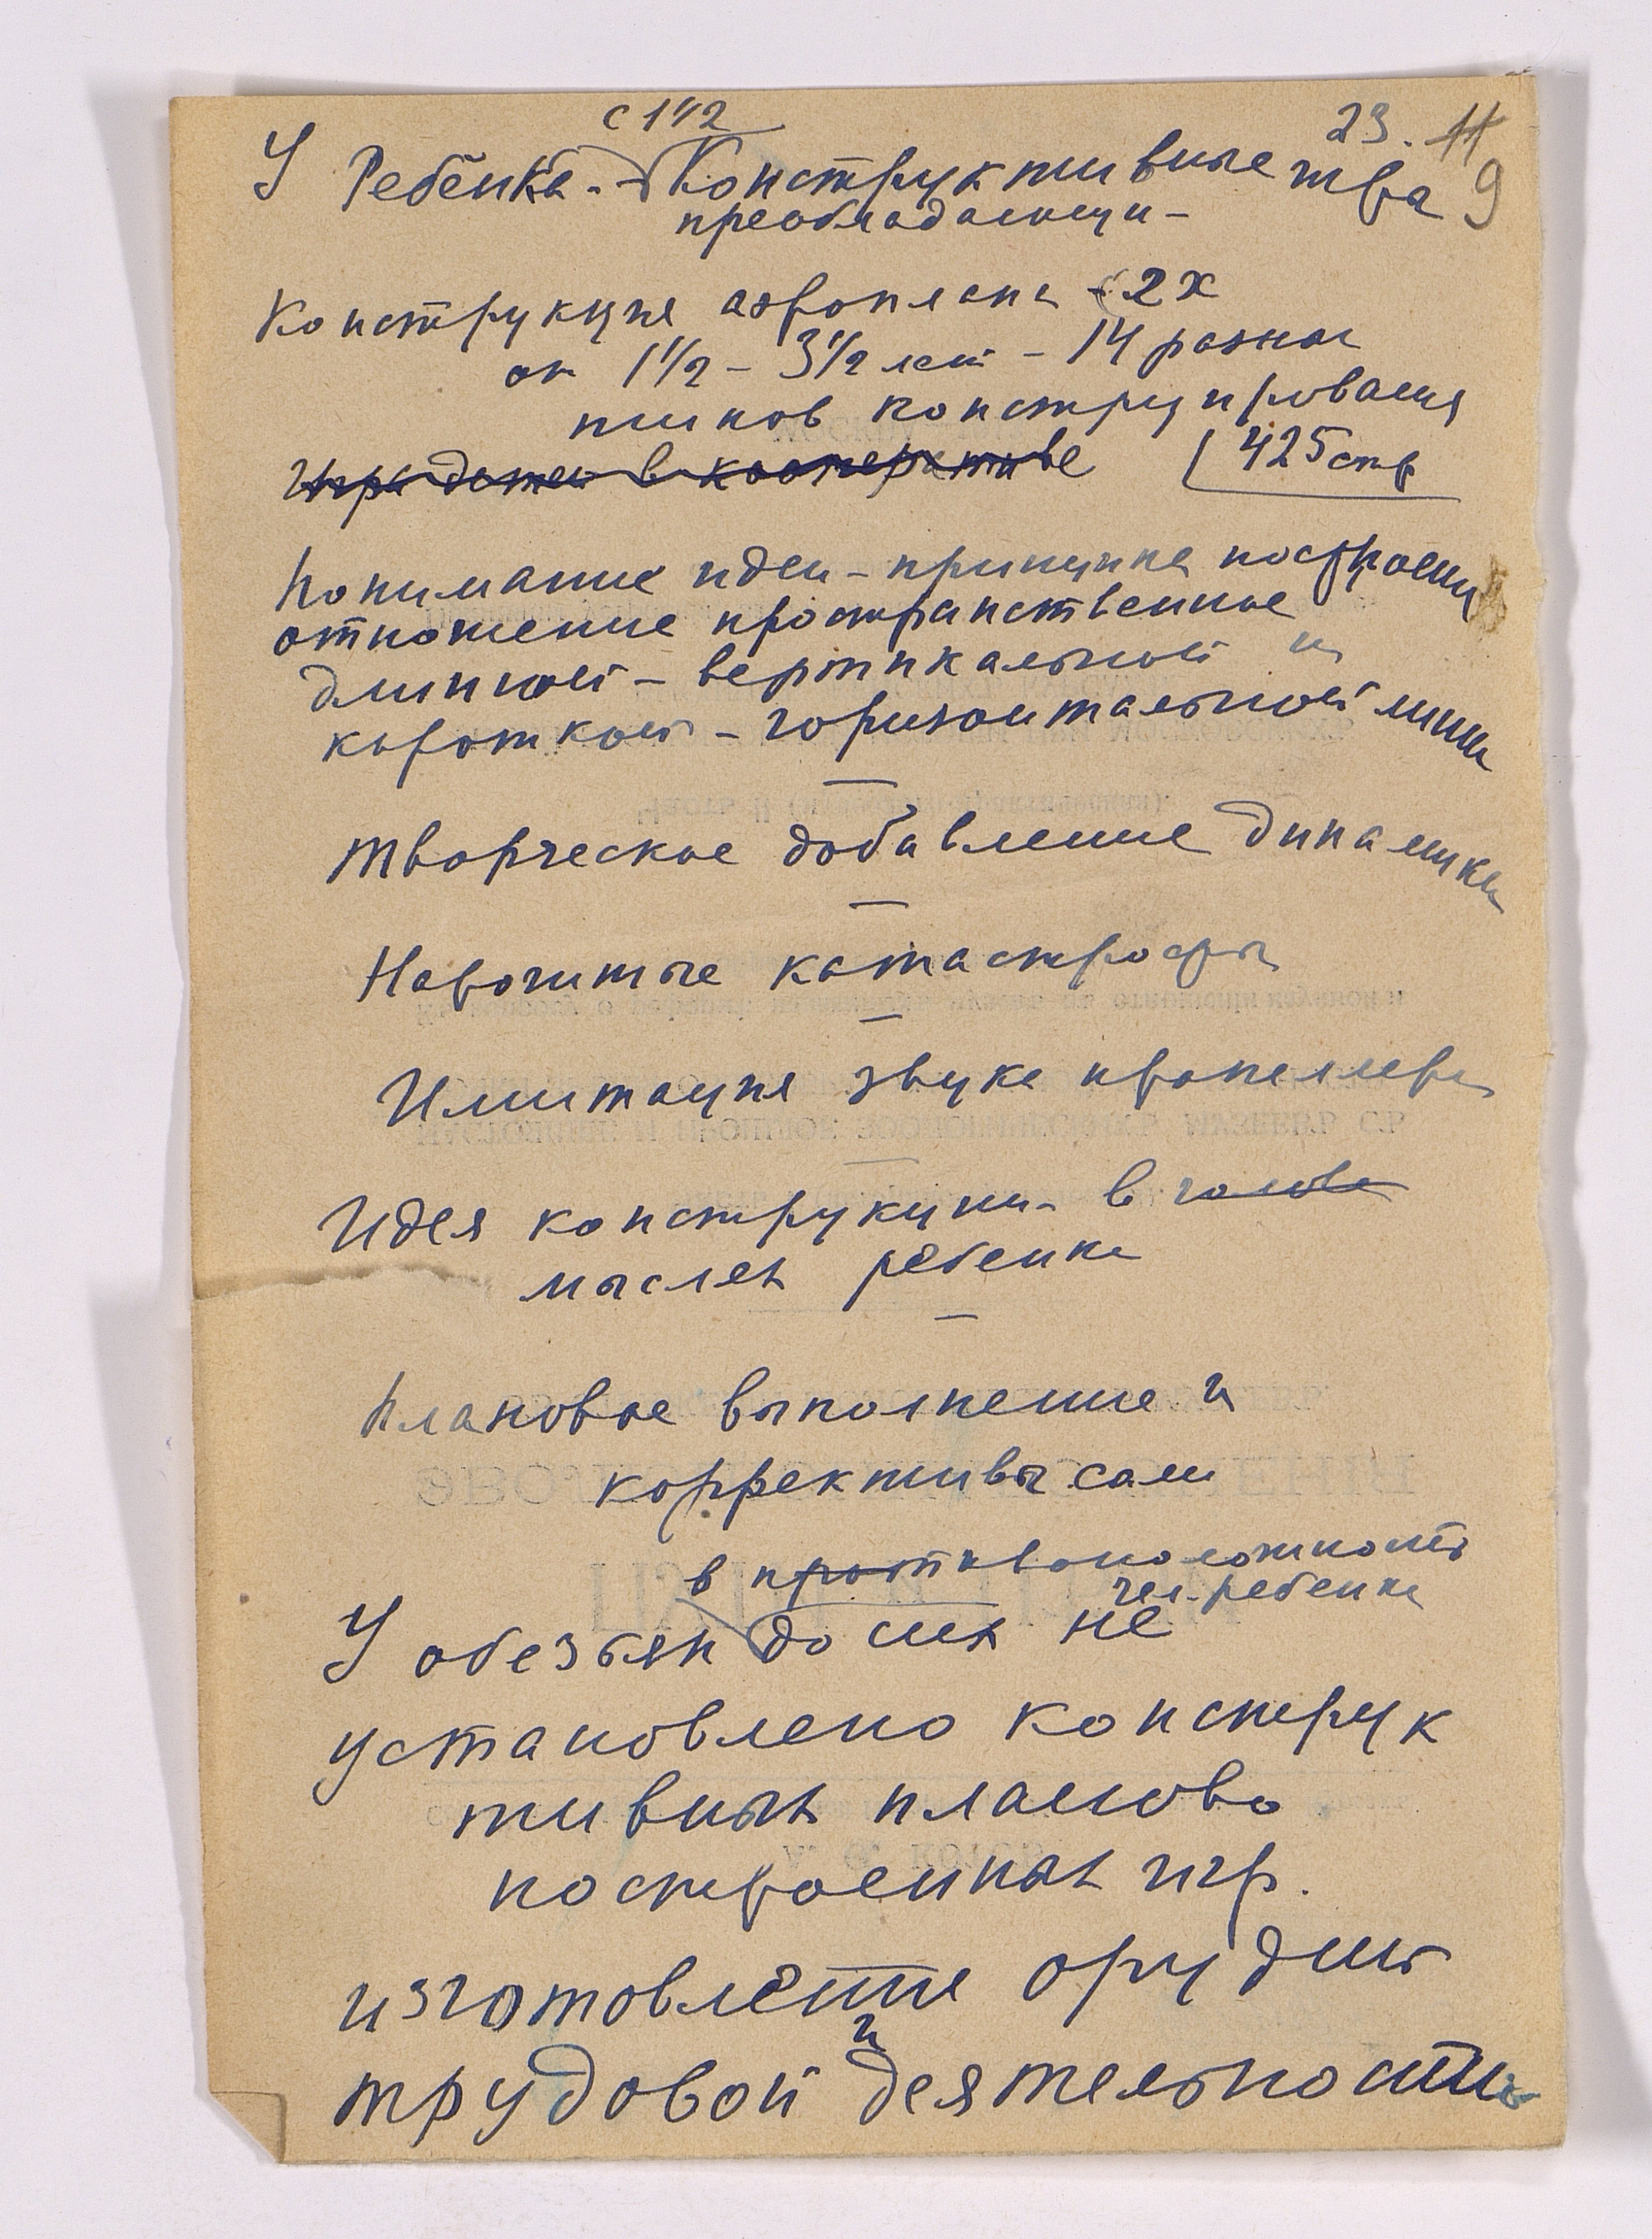 с 1 1/2
23. 11
9
У Ребёнка - Конструктивные игра
преобладающи -
Конструкция аэроплана - 2х
от 1 1/2 - 3 1/2 лет - 14 разных
типов конструирования
Игра детей в кооперативе
425 стр
Понимание идеи - принципа построения
отношение пространственное
длинной - вертикальной и
короткой - горизонтальной линии
Творческое добавление динамики
Нарочитые катастрофы
Имитация звука пропеллера
Идея конструкции - в голове
мыслях ребенка
Плановое выполнение и
коррективы сами
в противоположность
чел. ребенка
У обезьян до сих не
установлено конструк
тивных планово
построенных игр.
изготовление орудий
и
трудовой деятельности